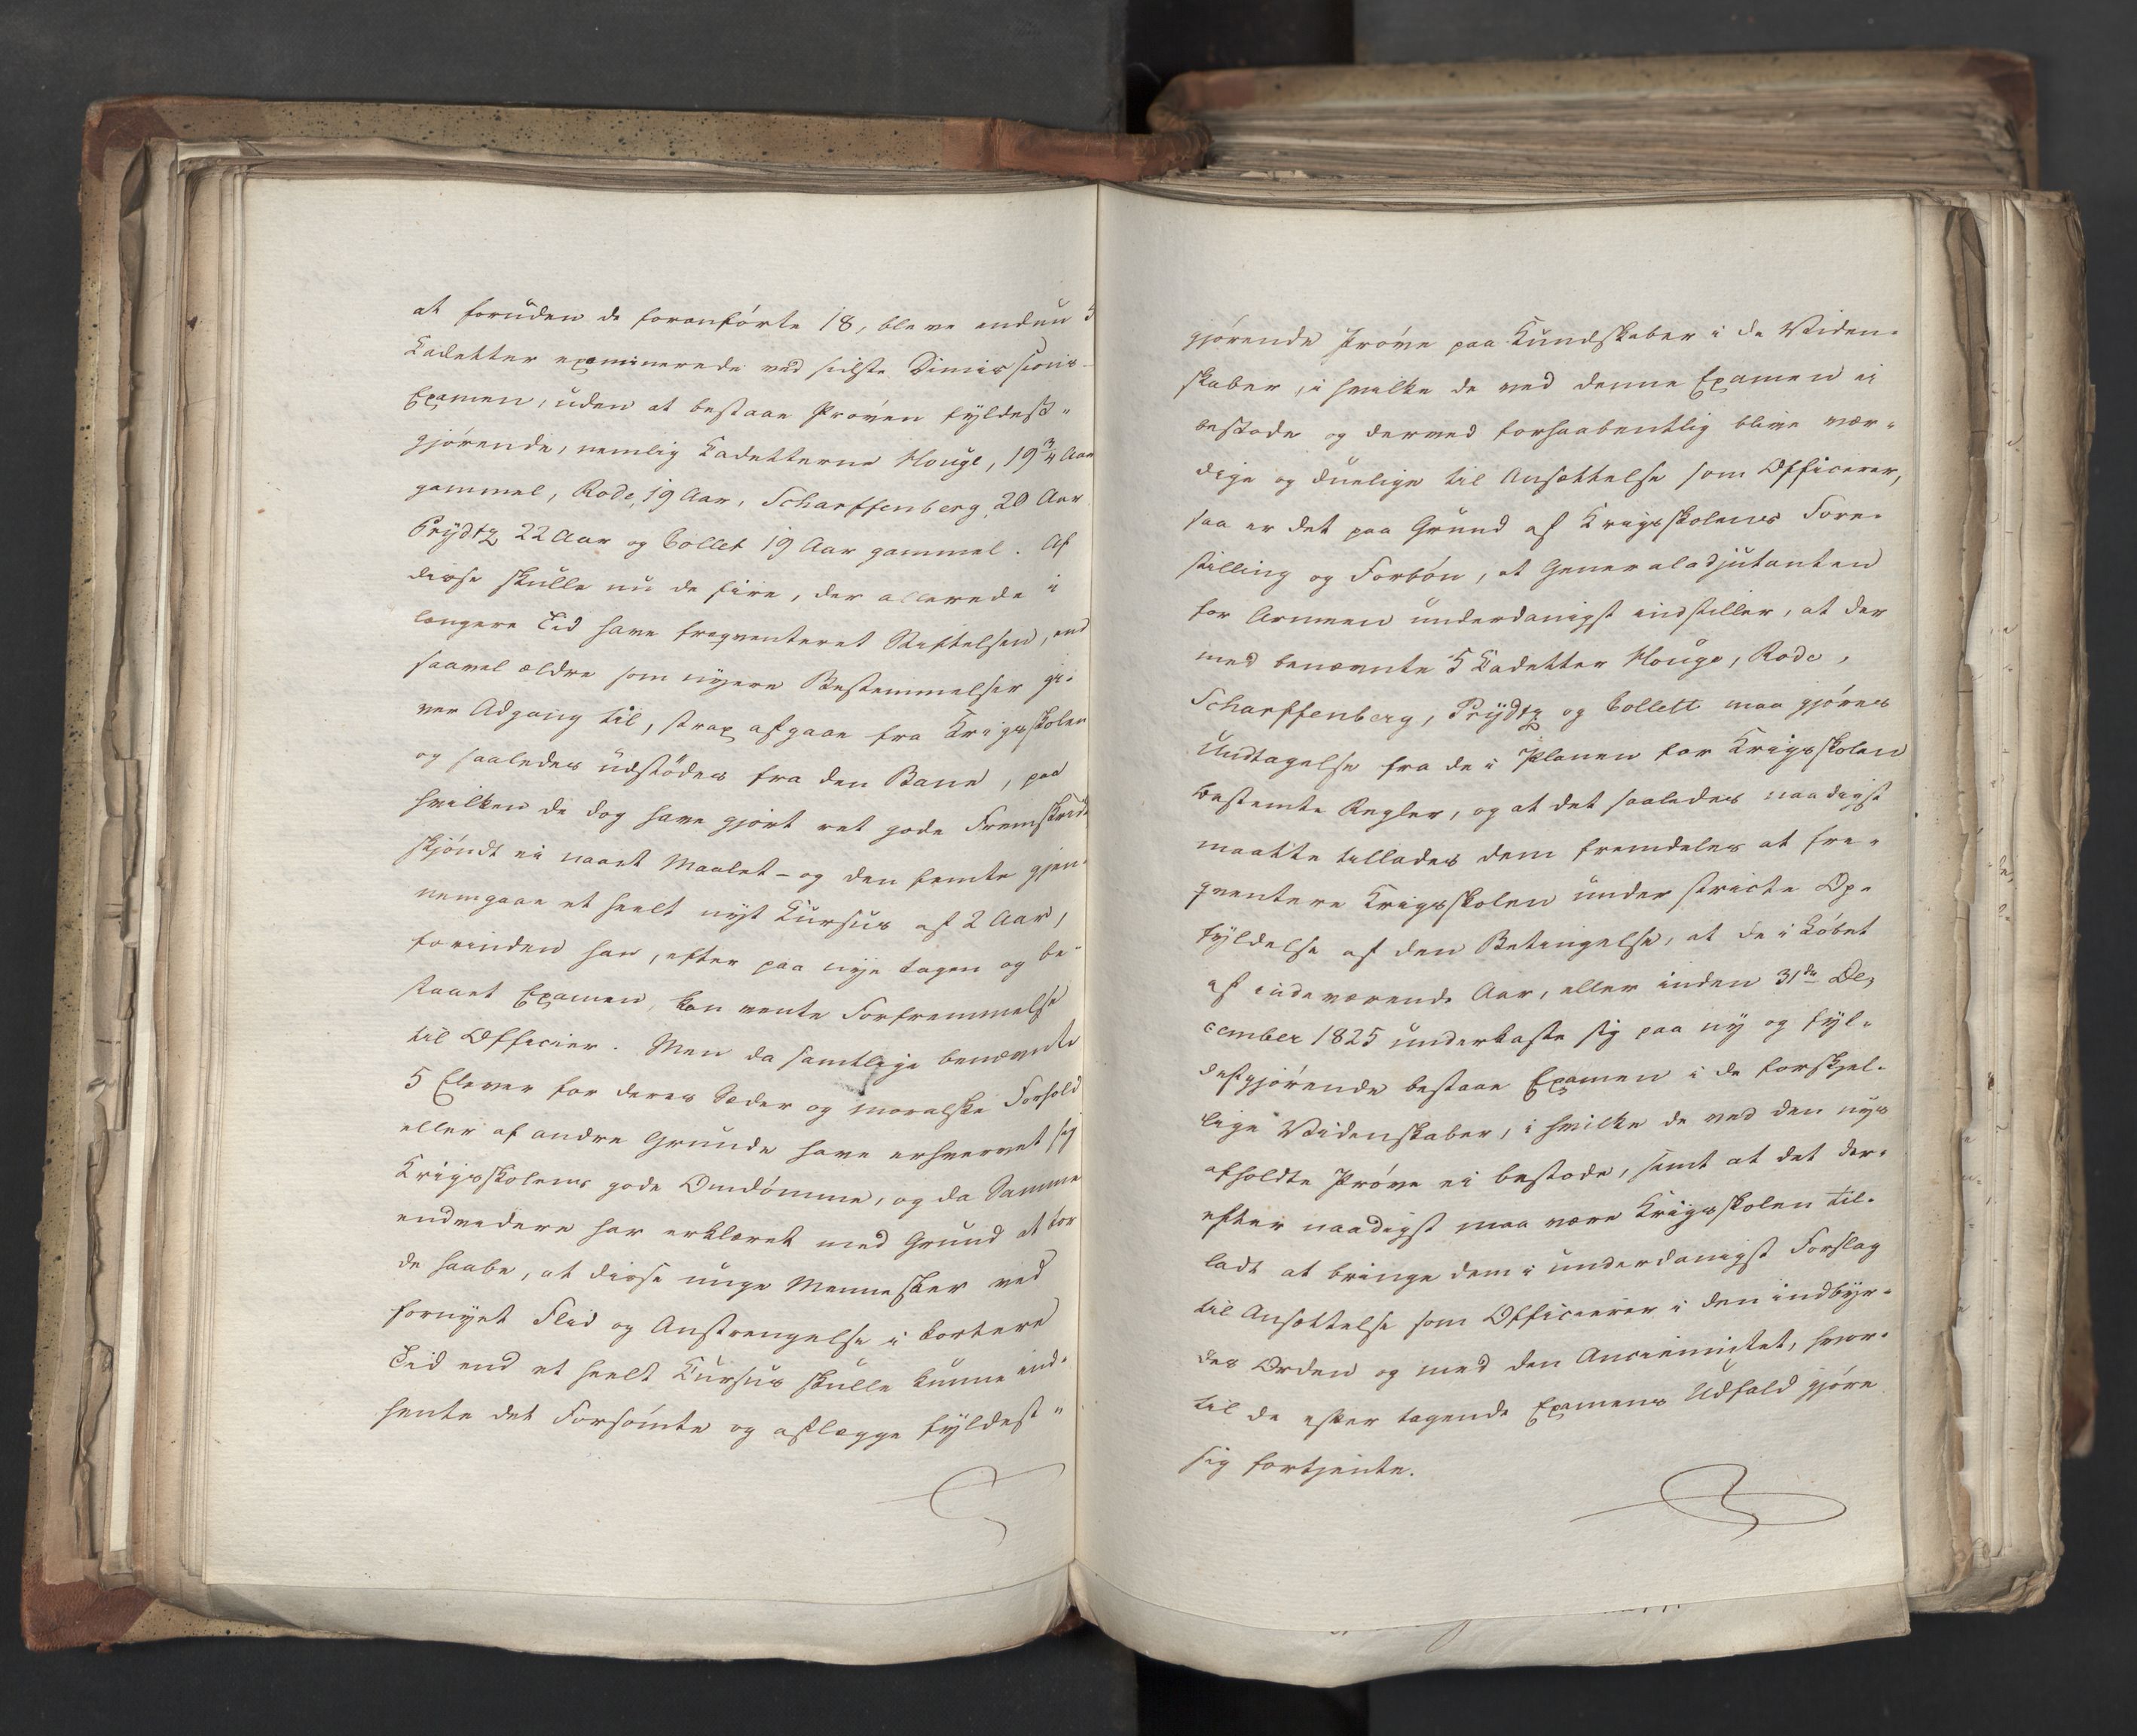 at foruden de foranførte 18, bleve endnu 5
Kadetter examinerede ved sidste Dimissions-
Examen, uden at bestaae Prøven fyldest-
gjørende, nemlig Kadetterne Houge, 19 3/4 Aar
gammel, Rode, 19 Aar, Scharffenberg, 20 Aar
Prydtz 22 Aar og Collet 19 Aar gammel. Af
disse skulle nu de fire, der allerede i
længere Tid have freqventeret Stiftelsen, end
saavel ældre som nyere Bestemmelser gi-
ver Adgang til, strax afgaae fra Krigsskolen
og saaledes udstødes fra den Bane, paa
hvilken de dog have gjort ret gode Fremskridt
skjøndt ei naaet Maalet - og den femte gjen-
nemgaae et heelt nyt Kursus af 2 Aar,
forinden han, efter paa nye tagen og be-
staaet Examen, kan vente Forfremmelse
til Officier. Men da samtlige benævnte
5 Elever for deres Sæder og moralske Forhold
eller af andre Grunde have erhvervet sig
Krigsskolens gode Omdømme, og da Samme
endvidere har erklæret med Grund at tør
de haabe, at disse unge Mennesker ved
fornyet Flid og Anstrengelse i kortere
Tid end et heelt Kursus skulle kunne ind-
hente det Forsømte og aflægge fyldest-
gjørende Prøve paa Kundskaber i de Viden-
skaber, i hvilke de ved denne Examen ei
bestode og derved forhaabentlig blive vær-
dige og duelige til Ansættelse som Officerer,
saa er det paa Grund af Krigsskolens Fore-
stilling og Forbøn, at Generaladjutanten
for Armeen underdanigst indstiller, at der
med benævnte 5 Kadetter Houge, Rode,
Scharffenberg, Prydtz og Collett maa gjøres
Undtagelse fra de i Planen for Krigsskolen
bestemte Regler, og at det saaledes naadigst
maatte tillades dem fremdeles at fre-
qventere Krigsskolen under stricte Op-
fyldelse af den Betingelse, at de i Løbet
af indeværende Aar, eller inden 31de De-
cember 1825 underkaste sig paa ny og fyl-
destgjørende bestaae Examen i de forskjel-
lige Videnskaber, i hvilke de ved den nys
afholdte Prøve ei bestode, samt at det der-
efter naadigst maa være Krigsskolen til-
ladt at bringe dem i underdanigst Forslag
til Ansættelse som Officierer i den indbyr-
des Orden og med den Ancienniitet, hvor-
til de efter tagende Examens Udfald gjøre
sig fortjente.